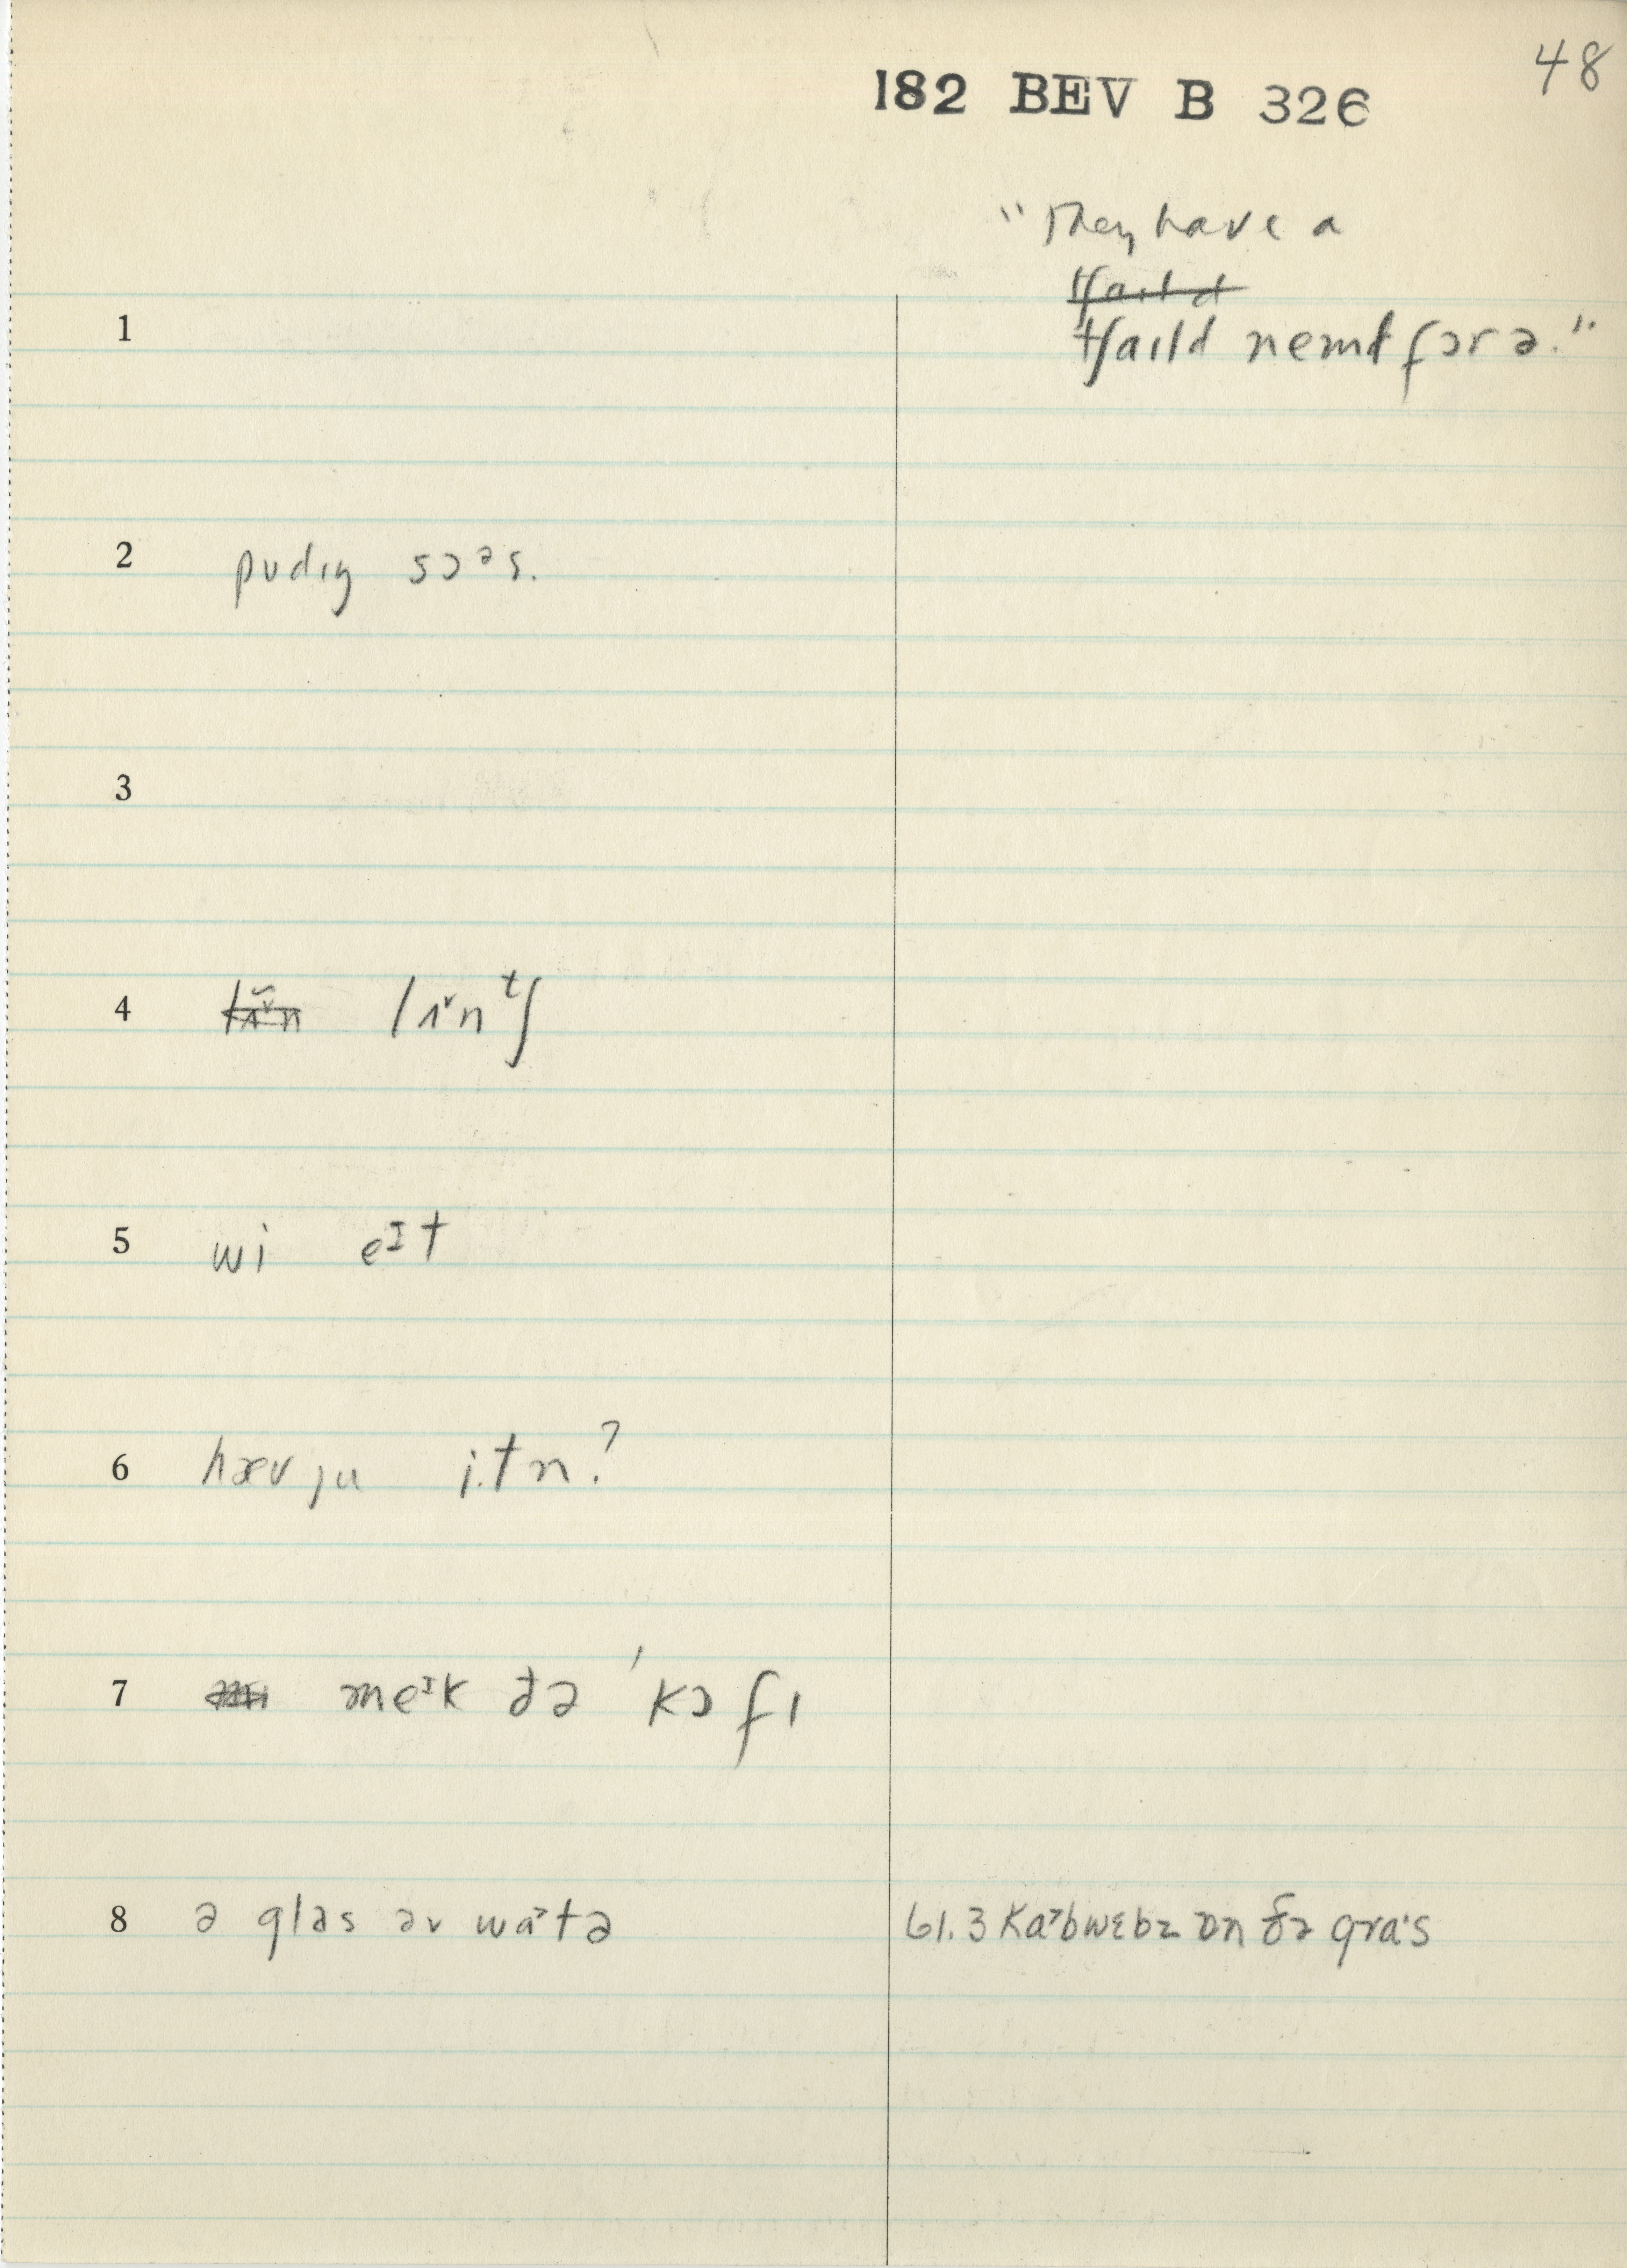 48
182 BEV B 326
"They have a
tʃaɪld
tʃaɪld nemd fɔr ə."
1
2 pudɪŋ sɔᵊs.
3
4 lɪ̌n lɪˇnᵗʃ
5 wi eᴵt
6 hæv ju i.tn?
7 meᴵk ðə 'kɔfɪ
8 ə glas əv waˀtə
61.3 Kaˀbwɛbz ɒn ðə graˑs